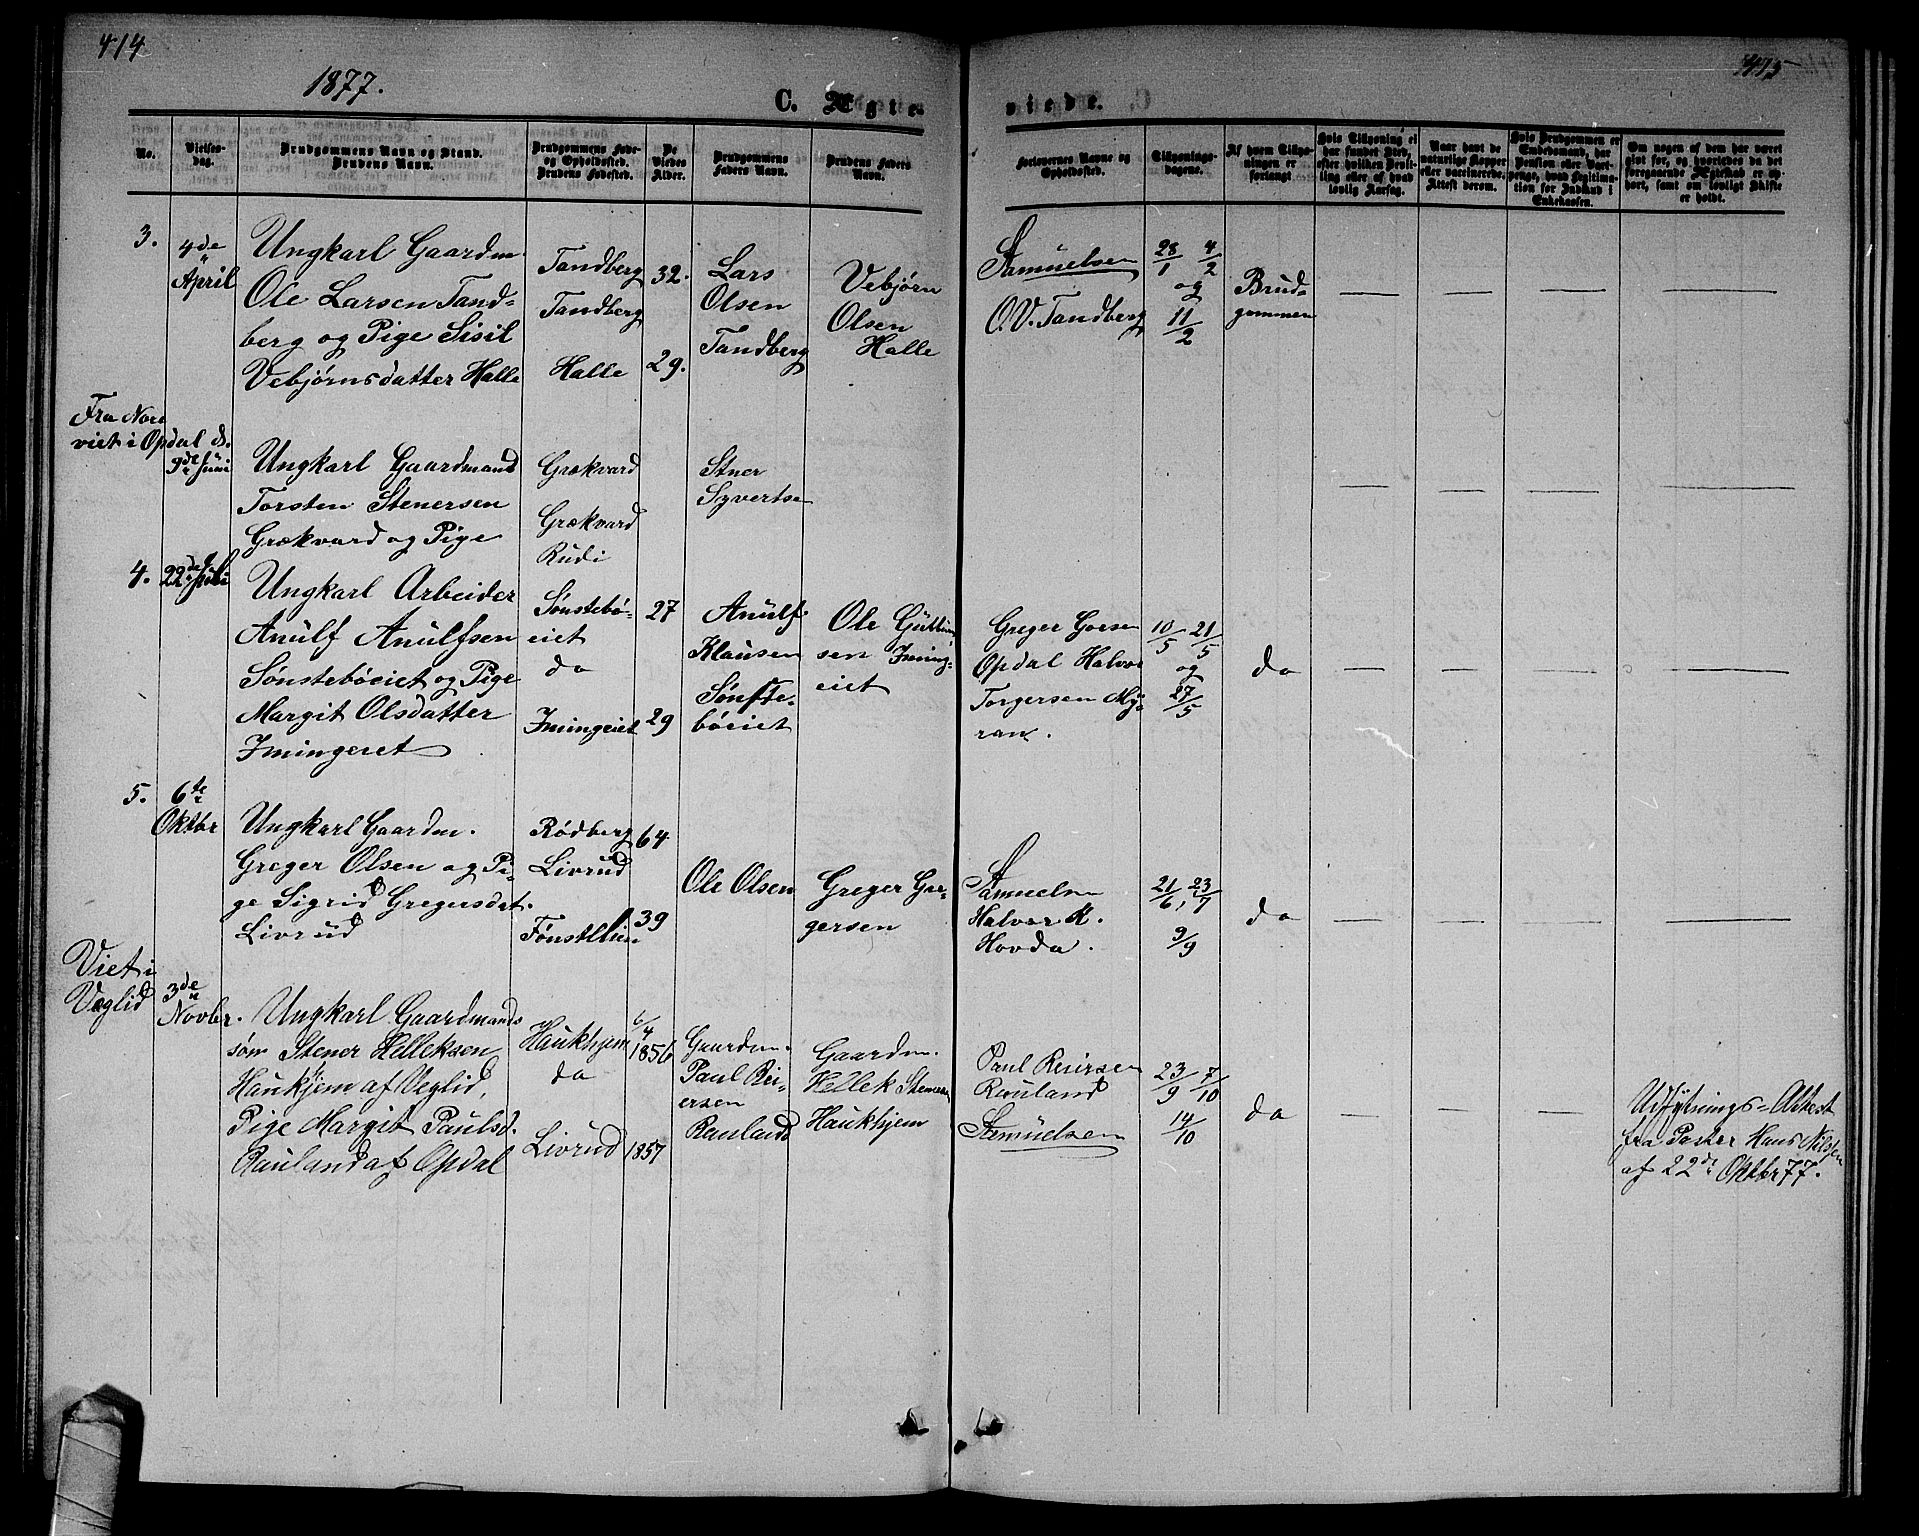 414
1877.
C. Ægte-
No.
Vielses-
dag.
Brudgommens Navn og Stand.
Brudens Navn.
Brudgommens Føde-
og Opholdssted.
Brudens Fødested.
De
Viedes
Alder.
Brudgommens
Faders Navn.
Brudens Faders
Navn.
3.
4de
April
Ungkarl Gaardm.
Ole Larsen Tand-
berg og Pige Sisil
Vebjørnsdatter Halle
Tandberg
Tandberg
Halle
32.
29.
Lars
Olsen
Tandberg
Vebjørn
Olsen
Halle
Fra Nore
viet i Opdal d.
9de Juni
Ungkarl Gaardmand
Torsten Stenersen
Grækvard og Pige
Grækvard
Grækvard
Rudi
Stner
Syvertse
4.
22de Juli
Ungkarl Arbeider
Anulf Anulfsen
Sønstebøeiet og Pige
Margit Olsdatter
Imingeiet
Sønstebø-
eiet
do
Imingeiet
27
29
Anulf
Klausen
Sønste-
bøeiet
Ole Guttum
sen Iming-
eiet
5.
6te
Oktbr
Ungkarl Gaardm.
Greger Olsen og Pi-
ge Sigrid Gregersdat.
Livrud
Rødberg
Livrud
Fønstelien
64
39
Ole Olsen
Greger Gre-
gersen
Viet i
Veglid
3de
Novbr.
Ungkarl Gaardmands
søn Stener Helleksen
Haukjem af Veglid,
Pige Margit Paulsd.
Rauland af Opdal
Haukhjem
do
Livrud
6/4
1856
1857
Gaardm.
Paul Rei-
ersen
Rauland
Gaardm.
Hellek Stenersen
Haukhjem
415
viede.
Forlovernes Navne og
Opholdssted.
Tillysnings-
dagene.
Af hvem Tillys-
ningen er
forlangt
Hvis Tillysning ei
har fundet Sted,
efter hvilken Bevil-
ling eller af hvad
lovlig Aarsag.
Naar havt de
naturlige Kopper
eller vaccinerede.
Attest derom.
Hvis Brudgommen er
Embedsmand, har
Pension eller Vart-
penge, hvad Legitima-
tion for Indskud i
Enkekassen.
Om nogen af dem har været
gift før, og hvorledes da det
foregaaende Ægteskab er op-
hørt, samt om lovligt Skifte
er holdt.
Samuelsen
O.V. Tandberg
28/1 4/2
og
11/2
Brud-
gommen
Greger Goesen
Opdal Halvor
Torgersen My-
ran.
10/5, 21/5
og
27/5
do
Samuelsen
Halvor K.
Hovda.
21/6, 23/7
9/9
do
Paul Reiersen
Rauland
Samuelsen
23/9 7/10
14/10
do
Udflytnings-Attest
fra Paster Hans Nilsen
af 22de Oktbr 77.